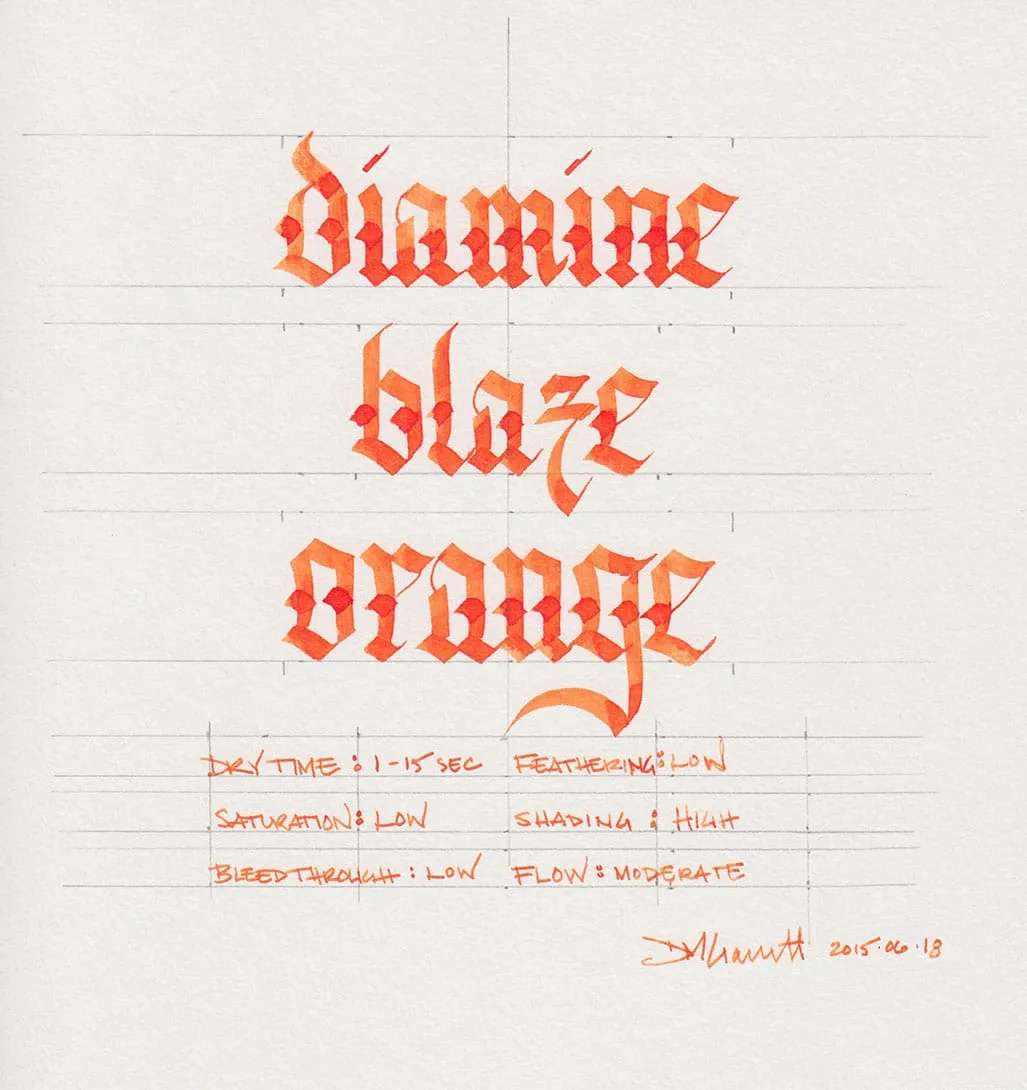 diamine
blaze
orange
DRY TIME : 1-15 SEC FEATHERING : LOW
SATURATION : LOW SHADING : HIGH
BLEEDTHROUGH : LOW FLOW : MODERATE
2015·06·18